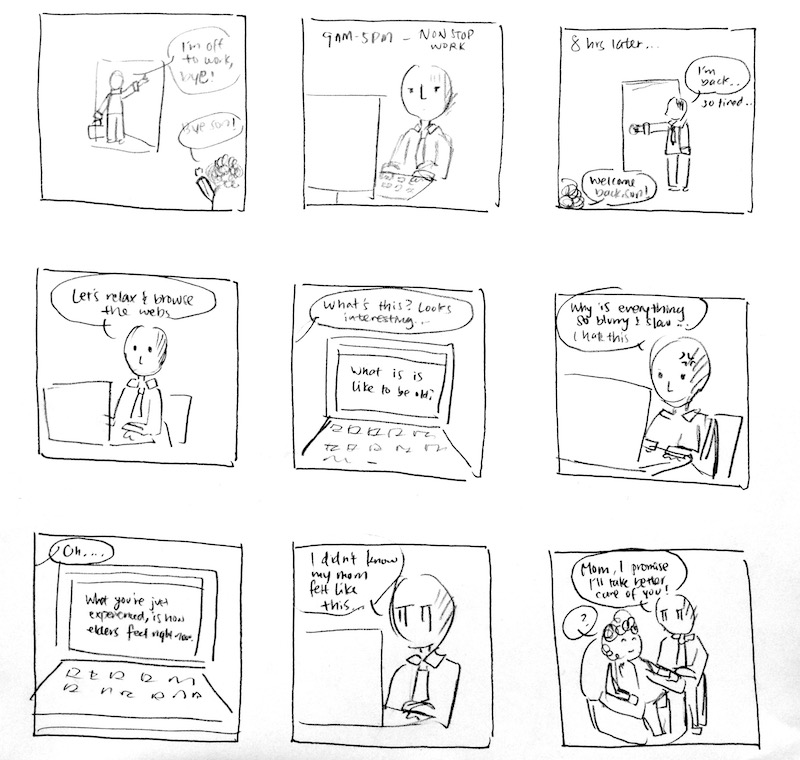 I'm off
to work,
bye!
Bye son!
9AM-5PM - NONSTOP
WORK
8 hrs later...
I'm
back..
so tired..
Welcome
back, son!
Let's relax &
browse
the webs
What's this? Looks
interesting...
What is is
like to be old?
Why is everything
so blurry & slow...
I hate this
Oh....
What you're just
experienced, is how
elders feel right now.
I didn't know
my mom
felt like
this...
Mom, I promise
I'll take better
care of you!
?